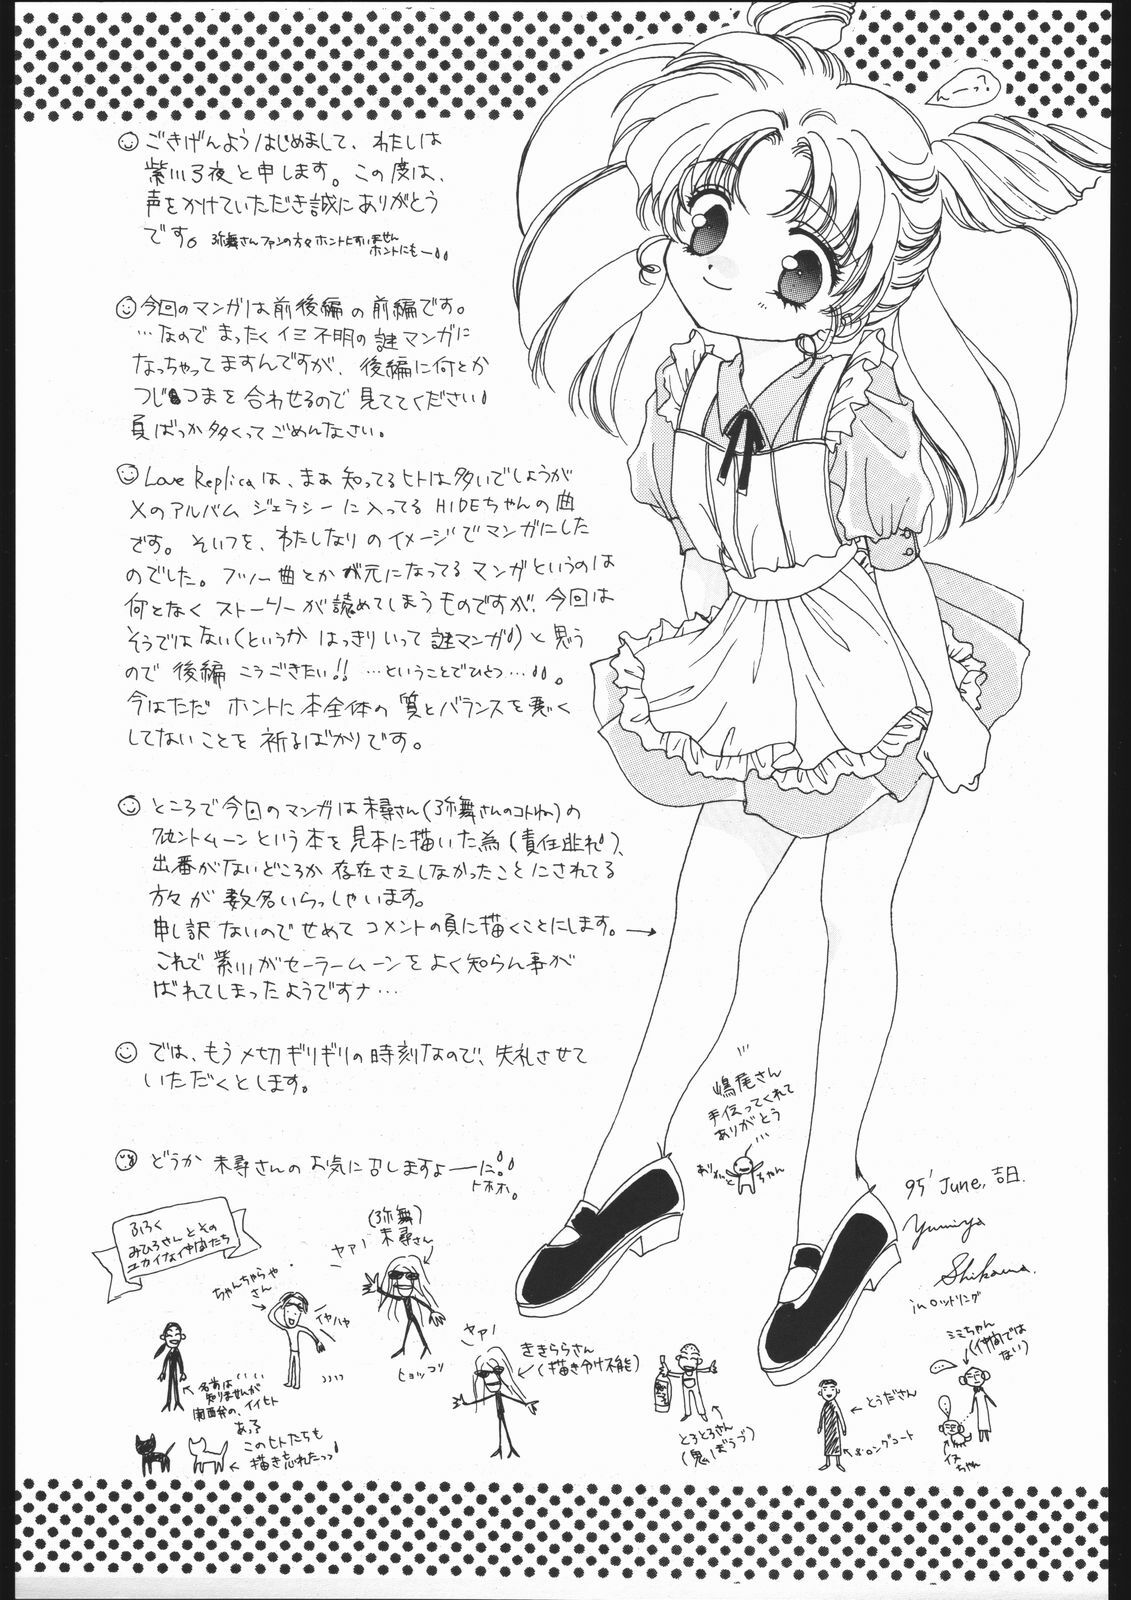 んーっ?
ごきげんよう はじめまして、わたしは
紫川弓夜と申します。この度は、
声をかけていただき誠にありがとう
です。弥舞さんファンの方々ホントにすいません
ホントにもー
今回のマンガは前後編の前編です。
…なので まったくイミ不明の謎マンガに
なっちゃってますんですが、後編に何とか
つじつまを合わせるので見ててください
負ばっか多くってごめんなさい。
Love Replicaは、まぁ知ってるヒトは多いでしょうが
Xのアルバム ジェラシーに入ってるHIDEちゃんの曲
です。そいつを、わたしなりのイメージでマンガにした
のでした。フツー曲とかが元になってるマンガというのは
何となくストーリーが読めてしまうものですが、今回は
そうではない(というか はっきりいって謎マンガ)と思う
ので 後編 こうごきたい!! …ということでひとつ…。
今はただ ホントに本全体の質とバランスを悪く
してないことを祈るばかりです。
ところで今回のマンガは未尋さん(弥舞さんのコトね)の
という本を見本に描いた為(責任逃れ)、
出番がないどころか存在さえしなかったことにされてる
方々が数名いらっしゃいます。
申し訳ないのでせめてコメントの頁に描くことにします。→
これで紫川がセーラームーンをよく知らん事が
ばれてしまったようですナ…
では、もう〆切ギリギリの時刻なので、失礼させて
いただくとします。
どうか 未尋さんのお気に召しますよーに
トホホ。
嶋尾さん
手伝ってくれて
ありがとう
ちゃん
95' June, 吉日.
Yumiya
Shikawa.
in ロットリング
ふろく
みひろさんとその
ユカイな仲間たち
ちゃんちゃらや
さん
イヤハヤ
(弥舞)
未尋さん
ヤァ!
ヒョッコリ
ヤァ!
きききららさん
(描き分け不能)
名前は
知りませんが
関西弁の、イイヒト
あっ
このヒトたちも
描き忘れたっっ
とろとろさん
(鬼ぼうず)
とうださん
ロングコート
ミミちゃん
(仲間では
ない)
イヌ
ちゃん